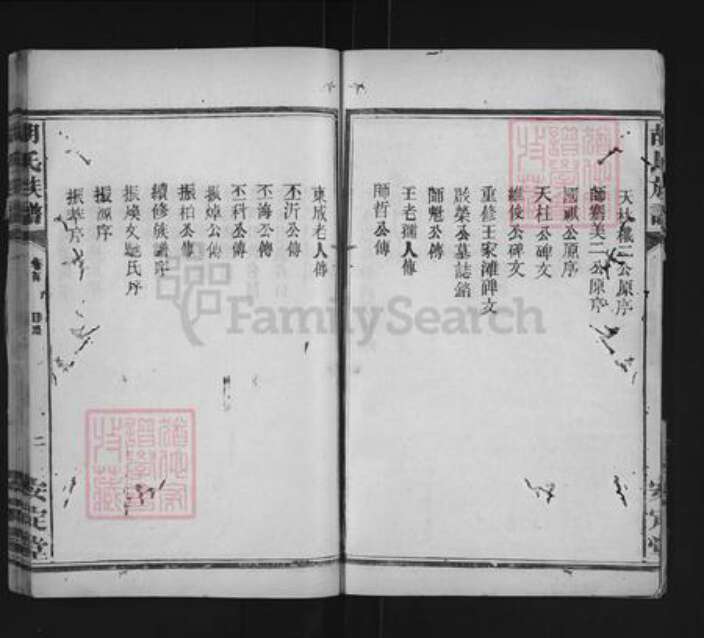 胡氏族譜
安定堂
天柱
二公原序
師
美二公原序
國
公原序
天柱公碑文
維俊公碑文
重修王家灘碑文
啟榮公墓誌銘
師魁公傳
王老孺人傳
師哲公傳
東成老人傳
丕沂公傳
丕海公傳
丕科公傳
振焯公傳
振柏公傳
續修族譜序
振煥
氏序
振源序
振華序
胡氏族譜
卷首
目錄
二
安定堂
FamilySearch